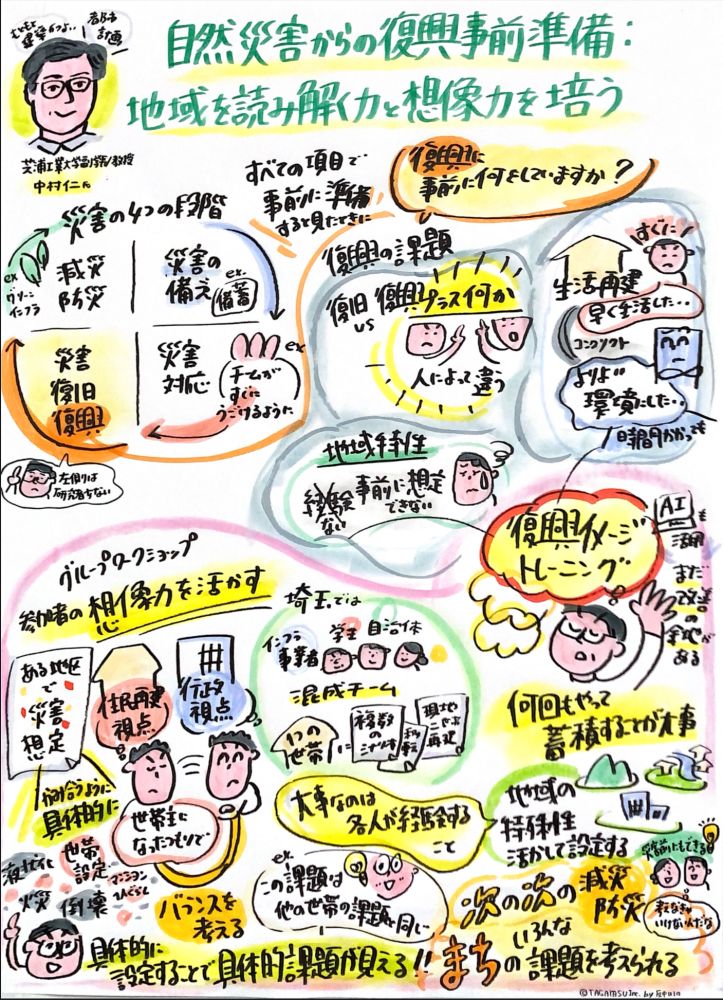 もともと
建築かつよ..
都市
計画
自然災害からの復興事前準備:
地域を読み解く力と想像力を培う
芝浦工業大学副学長/教授
中村仁氏
すべての項目で
事前に準備
すると見たときに
復興に
事前に何をしていますか?
災害の4つの段階
ex
グリーン
インフラ
減災
防災
災害の
備え
ex.
備蓄
災害
復旧
復興
災害
対応
ex
チームが
すぐに
うごけるように
左側は
研究者少ない
復興の課題
復旧
vs
復興プラス何か
人によって違う
すぐに!
生活再建
早く生活した..
コンフリクト
よりよい
環境にした..
時間かかっても
地域特性
経験
ない
事前に想定
できない
復興イメージ
トレーニング
AIも
活用
まだ
改善
の
余地が
ある
何回もやって
蓄積することが大事
グループワークショップ
参加者の想像力を活かす
ある地区
で
災害
想定
住民再建
視点
行政
視点
かみ合うように
具体的に
世帯主に
なったつもりで
埼玉では
インフラ
事業者
学生
自治体
混成チーム
1つの
世帯
に
複数
の
シナリオ
移転
現地
再建
大事なのは
各人が経験する
こと
地域の
特殊性
活かして設定する
液状化
世帯
設定
火災
倒壊
バランスを
考える
ex.
この課題は
他の世帯の課題と同じ
災害前にもできる
考えなきゃ
いけないんだな
次の次の
減災
防災
いろんな
まちの課題を考えられる
具体的に
設定することで具体的課題が見える!!
©TAGAMISU Inc. by